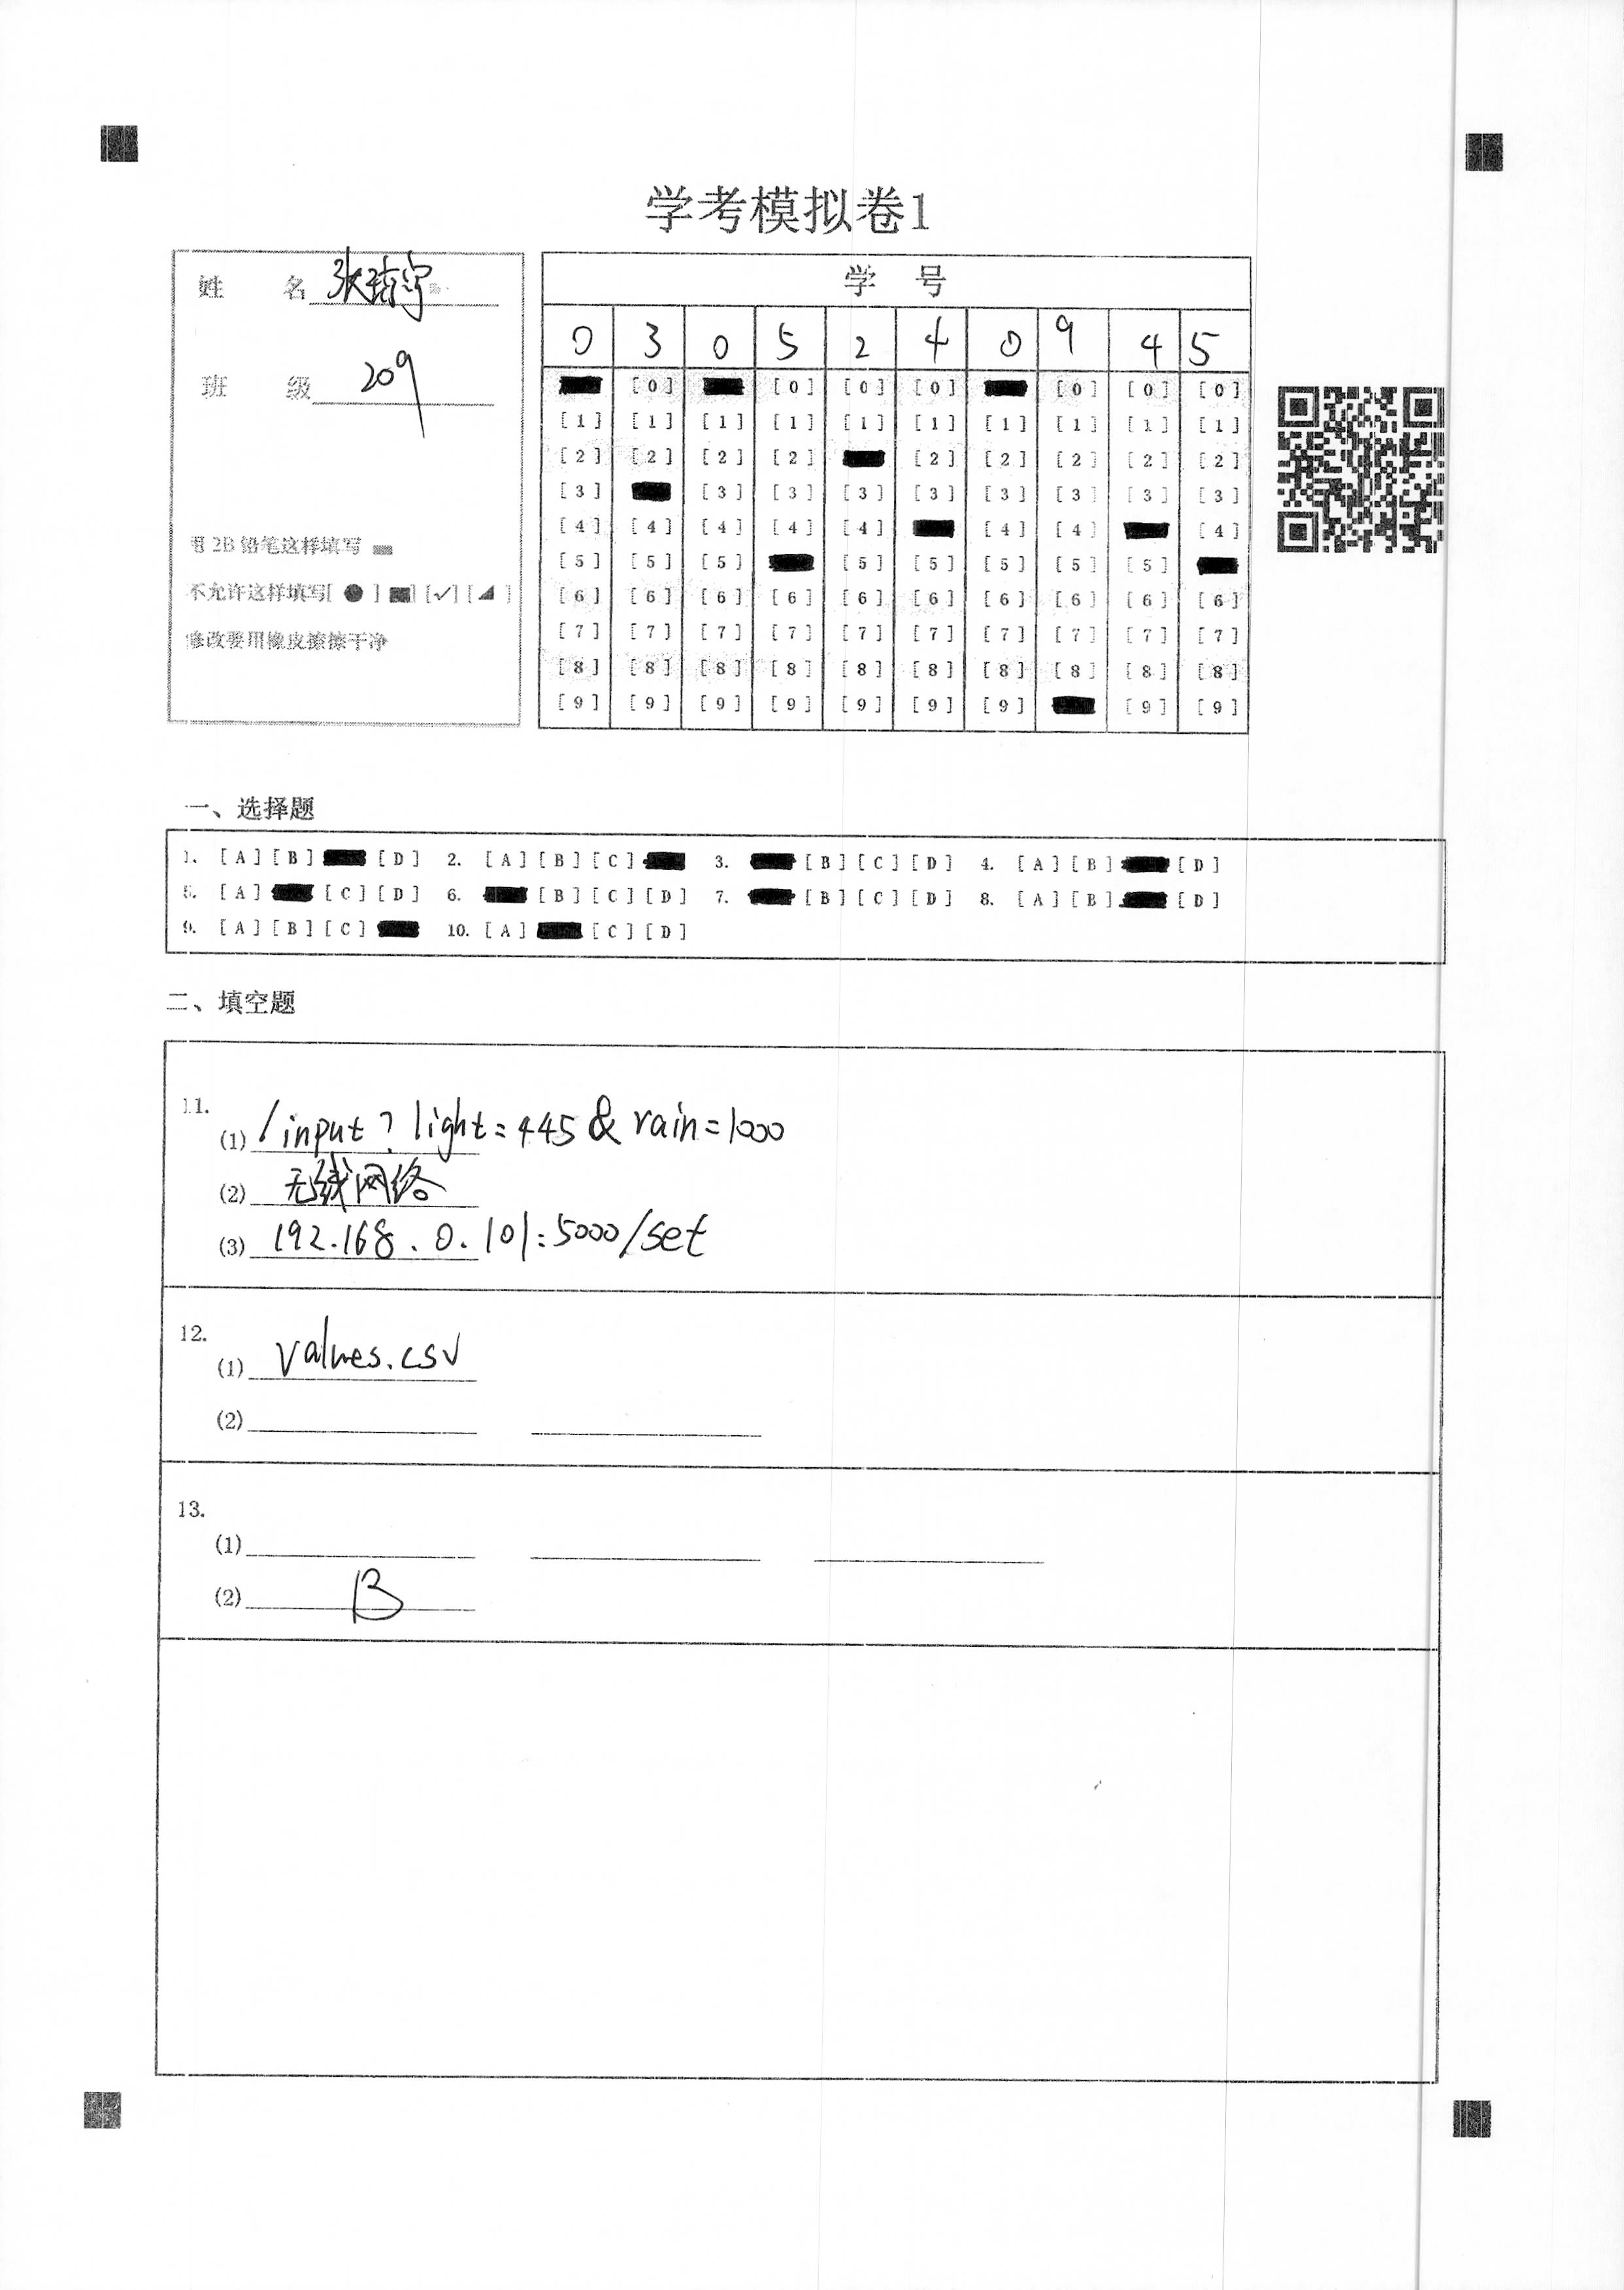 学考模拟卷1
姓 名 张
班 级 209
用2B铅笔这样填写
不允许这样填写[ ● ] [■] [✓] [◢ ]
修改要用橡皮擦擦干净
学 号
0 3 0 5 2 4 0 9 4 5
[0] [0] [0] [0] [0] [0] [0]
[1] [1] [1] [1] [1] [1] [1] [1] [1] [1]
[2] [2] [2] [2] [2] [2] [2] [2] [2]
[3] [3] [3] [3] [3] [3] [3] [3] [3]
[4] [4] [4] [4] [4] [4] [4] [4]
[5] [5] [5] [5] [5] [5] [5] [5]
[6] [6] [6] [6] [6] [6] [6] [6] [6] [6]
[7] [7] [7] [7] [7] [7] [7] [7] [7] [7]
[8] [8] [8] [8] [8] [8] [8] [8] [8] [8]
[9] [9] [9] [9] [9] [9] [9] [9] [9]
一、选择题
1. [A] [B] [D] 2. [A] [B] [C] 3. [B] [C] [D] 4. [A] [B] [D]
5. [A] [C] [D] 6. [B] [C] [D] 7. [B] [C] [D] 8. [A] [B] [D]
9. [A] [B] [C] 10. [A] [C] [D]
二、填空题
11.
(1) /input?light=445&rain=1000
(2) 无线网络
(3) 192.168.0.101:5000/set
12.
(1) values.csv
(2)
13.
(1)
(2) B